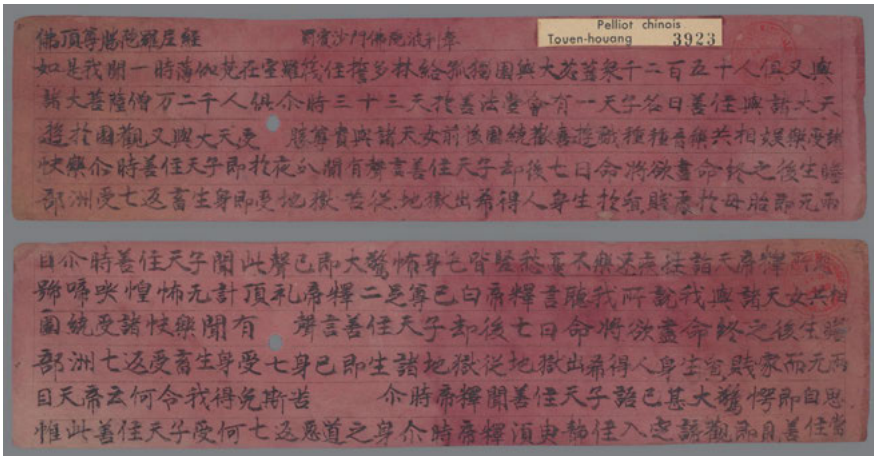 佛頂尊勝陁羅尼經 罽賓沙門佛陁波利奉
Pelliot chinois
Touen-houang 3923
如是我聞一時薄伽梵在室羅筏住誓多林給孤獨園與大苾蒭衆千二百五十人俱又與
諸大菩薩僧万二千人俱尒時三十三天於善法堂會有一天子名曰善住與諸大天
遊於園觀又與大天受 勝尊貴與諸天女前後圍繞歡喜遊戲種種音樂共相娛樂受諸
快樂尒時善住天子即於夜分聞有聲言善住天子却後七日命將欲盡命終之後生贍
部洲受七返畜生身即受地獄苦從地獄出希得人身生於貧賤處於母胎即无兩
目尒時善住天子聞此聲已即大驚怖身毛皆竪愁憂不樂速疾往詣天帝釋所悲
號啼哭惶怖无計頂礼帝釋二足尊已白帝釋言聽我所說我與諸天女共相
圍繞受諸快樂聞有 聲言善住天子却後七日命將欲盡命終之後生贍
部洲七返受畜生身受七身已即生諸地獄從地獄出希得人身生貧賤家而无兩
目天帝云何令我得免斯苦 尒時帝釋聞善住天子語已甚大驚愕即自思
惟此善住天子受何七返惡道之身尒時帝釋須臾靜住入定諦觀即見善住當